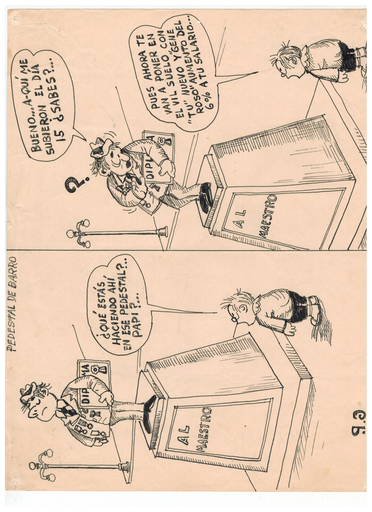 PEDESTAL DE BARRO
¿QUÉ ESTÁS
HACIENDO AHÍ,
EN ESE PEDESTAL?...
PAPI?...
DIPLMA
AL
MAESTRO
6.9
BUENO... A-QUÍ ME
SUBIERON EL DÍA
15 ¿SABES?...
PUES AHORA TE
VAN A PONER EN
EL VIL SUELO, CON
"TU" NUEVO Y "GENE
ROSO" AUMENTO DEL
6% A TU SALARIO...
?
DIPL
AL
MAESTRO